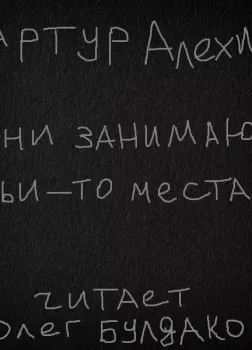 АРТУР Алехи
НИ ЗАНИМАЮ
ЬИ-ТО МЕСТА
ЧИТАЕТ
ОЛЕГ БУЛДАКО